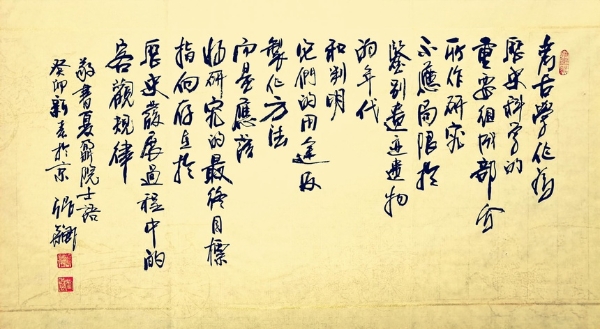 考古學作為
歷史科学的
重要組成部分
所作研究
不應局限於
鑒别遺迹遺物
的年代
和判明
它們的用途及
製作方法
而是應該
把研究的最終目標
指向存在於
歷史發展過程中的
客觀規律
敬書夏鼐院士語
癸卯新春於京